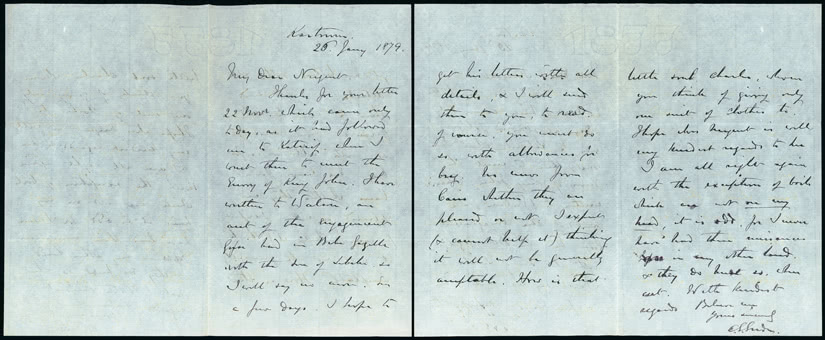 Kartoum.
28 Jany 1879.
My Dear Nugent
Thanks for your letter
22 Nov. which came only
today, as it had followed
me to Katarif, when I
went there to meet the
Envoy of King John. I have
written to Watson, an
acct of the engagement
Gessi had in Bahr Gazelle
with the son of Sebehr so
I will say no more. In
a few days I hope to
get his letters with all
details, & I will send
them to you, to read.
Of course you must do
so with allowances for
news from
Cairo whether they are
pleased or not I expect
(& cannot help it) thinking
it will not be generally
acceptable. How is that
little soul Charles, whom
you think of giving only
one suit of clothes to.
I hope Mrs Nugent is well
my kindest regards to her
I am all right again
with the exception of boils
which are not on my
head, it is odd, for I never
have had these nuisances
in any other land.
& they do hurt so, when
cut. With kindest
regards Believe me
Yours sincerely
C. G. Gordon